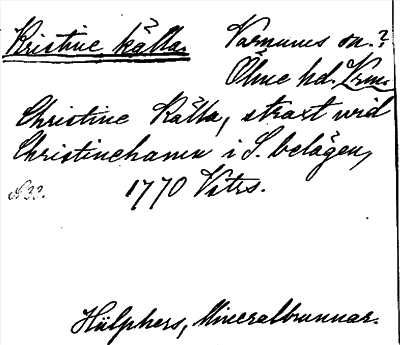 Kristine källa. Varnums sn.?
Ölme hd. Vrm.
Christine Källa, straxt wid
Christinehamn i S. belägen,
1770 Vstrs.
N 33.
Hülphers, Mineralbrunnar.